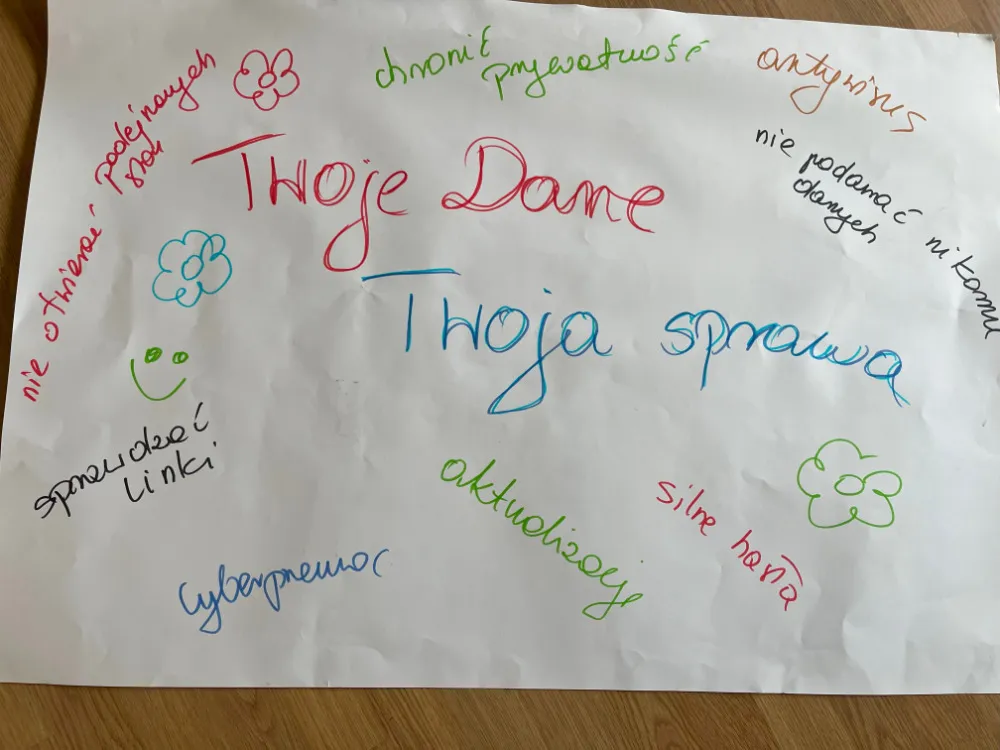 chronić
prywatność
antywirus
nie otwierać podejrzanych
stron
Twoje Dane
nie podawać nikomu
danych
Twoja sprawa
sprawdzać
linki
aktualizacje
silne hasła
cyberprzemoc